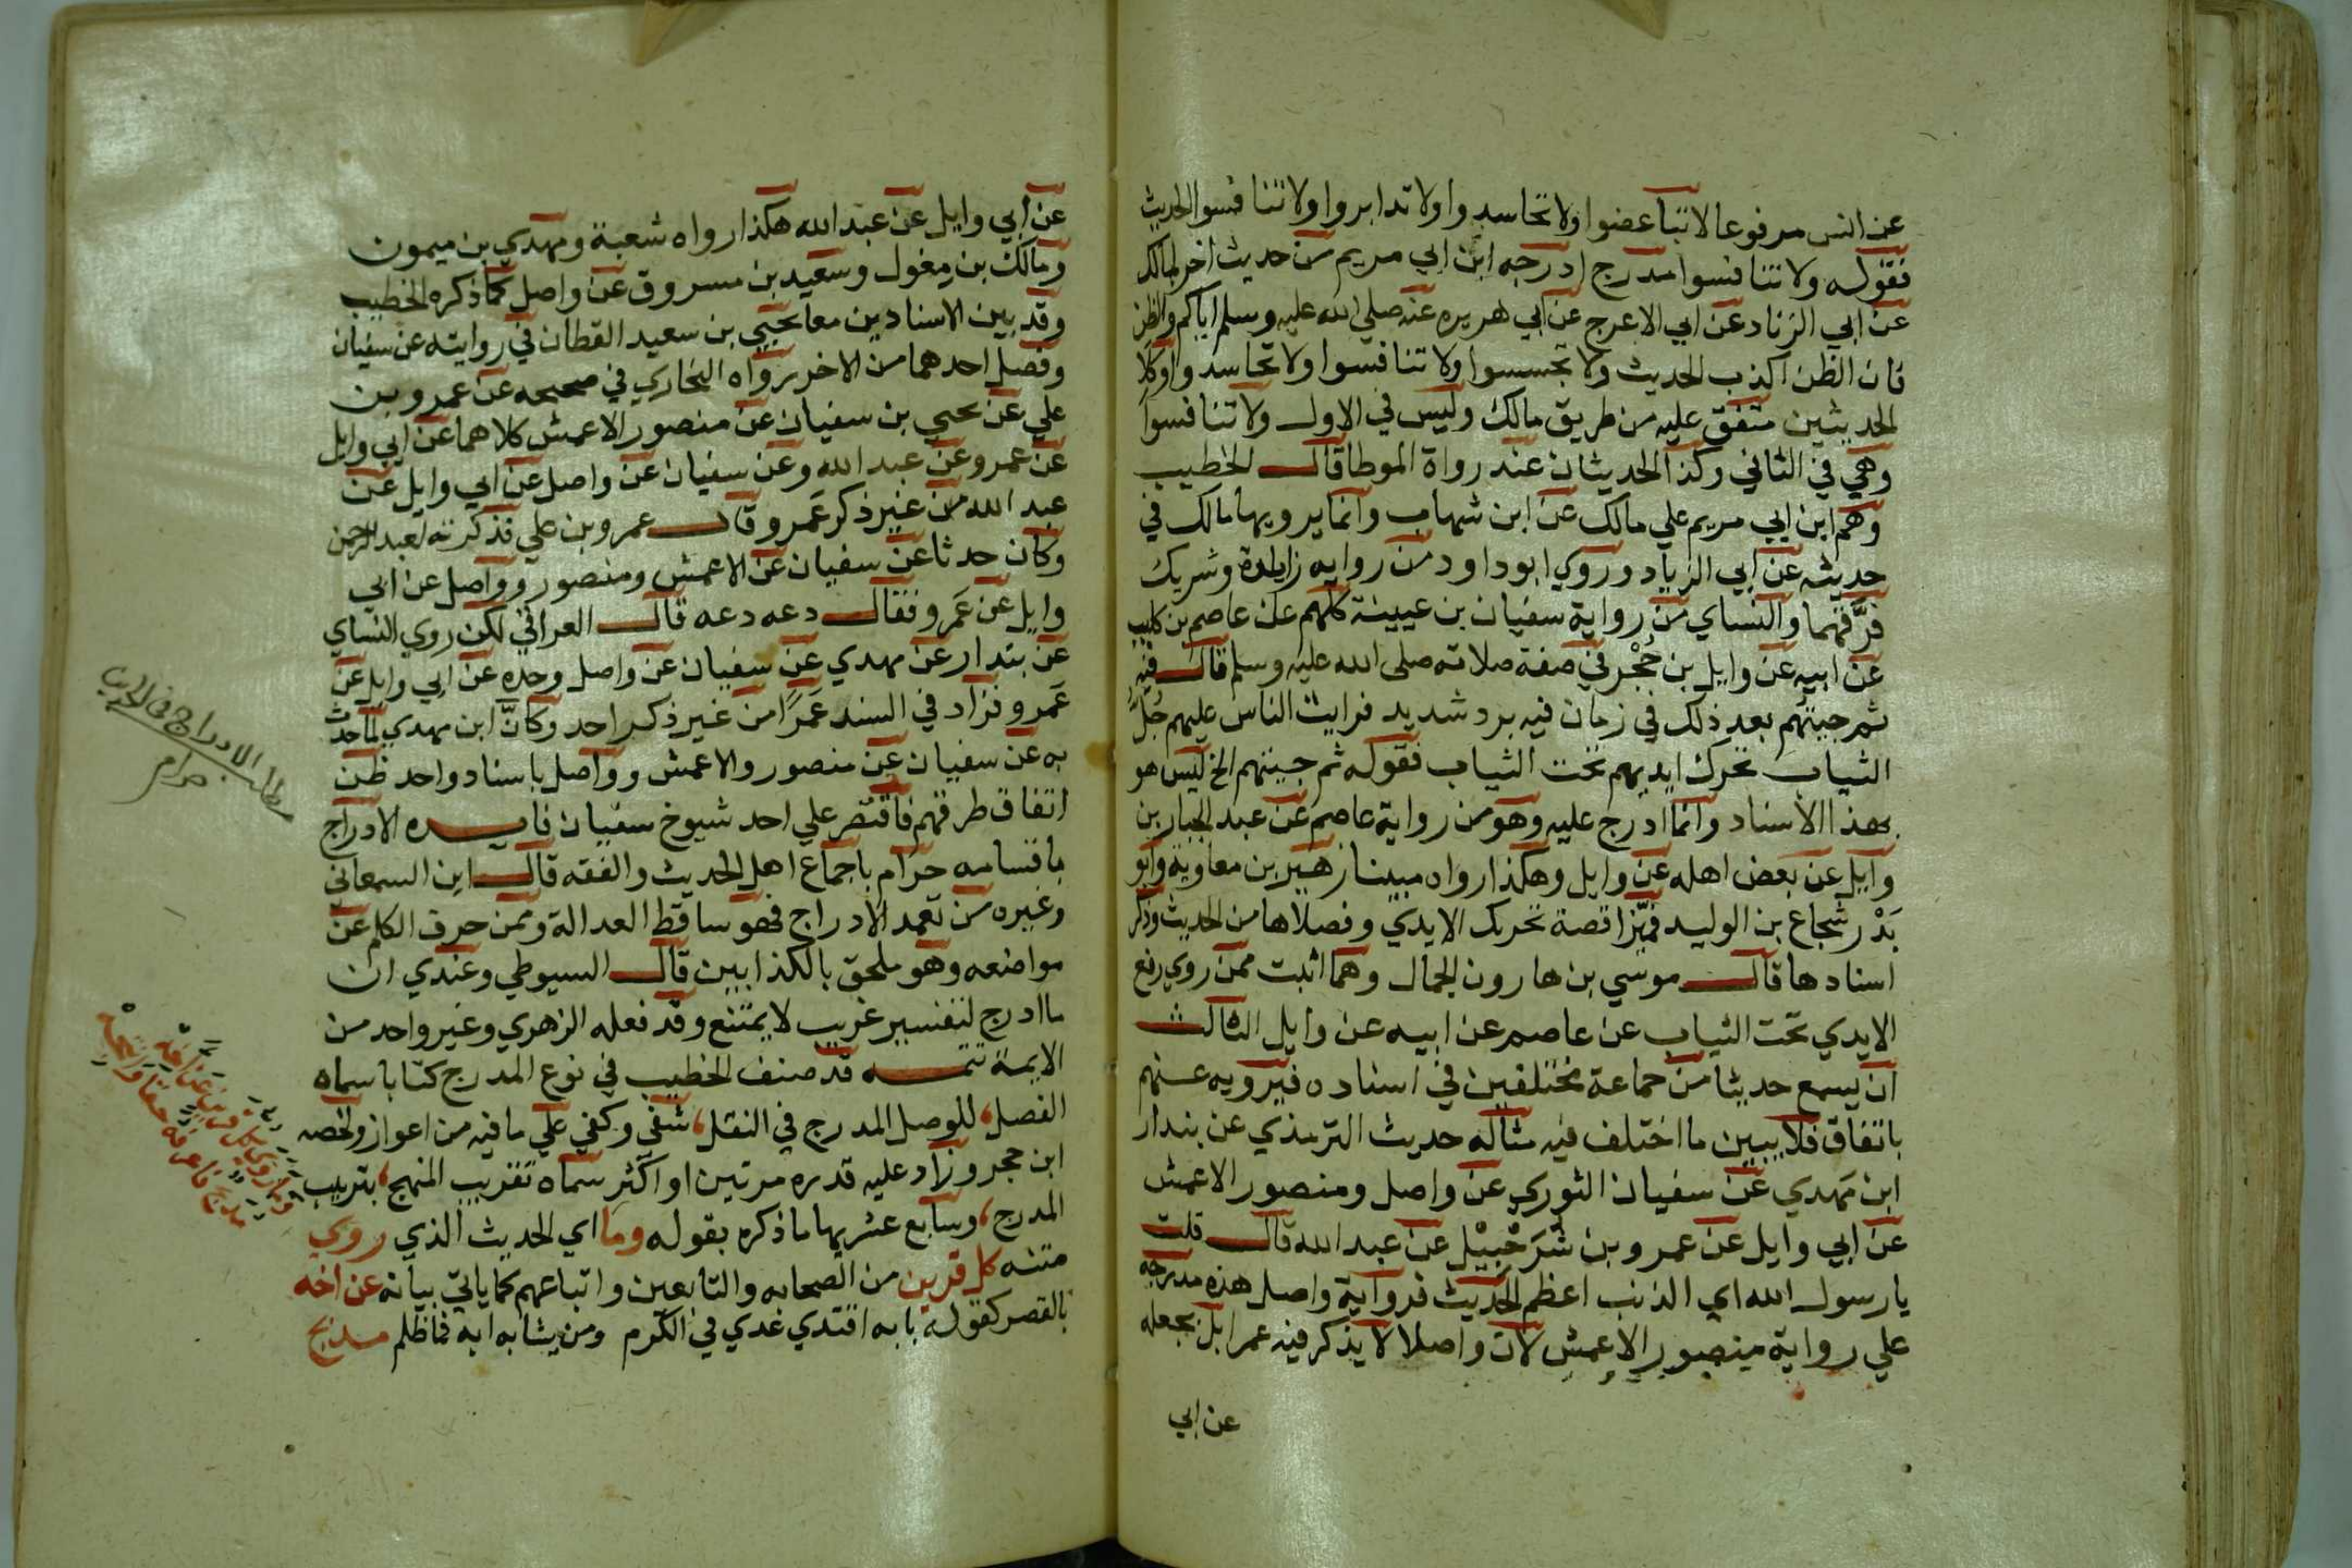 عن انس مرفوعا لا تباغضوا ولا تحاسدوا ولا تدابروا ولا تنافسوا الحديث
فقوله ولا تنافسوا مدرج ادرجه ابن ابي مريم من حديث اخر لمالك
عن ابي الزناد عن ابي الاعرج عن ابي هريره عنه صلي الله عليه وسلم اياكم والظن
فان الظن اكذب الحديث ولا تجسسوا ولا تنافسوا ولا تحاسدوا وكلا
الحديثين متفق عليه من طريق مالك وليس في الاول ولا تنافسوا
وهي في الثاني وكذا الحديثان عند رواة الموطا قال الخطيب
وهم ابن ابي مريم علي مالك عن ابن شهاب وانما يرويها مالك في
حديثه عن ابي الزياد وروي ابو داود من روايه زايدة وشريك
فرَّقهما والنساي من رواية سفيان بن عيينة كلهم عن عاصم بن كليب
عن ابيه عن وايل بن حُجْر في صفة صلاته صلى الله عليه وسلم قال فيه
ثم جيتهم بعد ذلك في زمان فيه برد شديد فرايت الناس عليهم جُلُّ
الثياب تحرك ايديهم تحت الثياب فقوله ثم جيتهم الخ ليس هو
بهذا الاسناد وانما ادرج عليه وهو من رواية عاصم عن عبد الجبار بن
وايل عن بعض اهله عن وايل وهكذا رواه مبينا زهير بن معاوية وابو
بَدْر شجاع بن الوليد فميّزا قصة تحريك الايدي وفصلاها من الحديث وذكر
اسنادها قال موسي بن هارون الجمال وهما اثبت ممن روي رفع
الايدي تحت الثياب عن عاصم عن ابيه عن وايل الثالث
ان يسمع حديثا من جماعة مختلفين في اسناده فيرويه عنهم
باتفاق فلا يبين ما اختلف فيه مثاله حديث الترمذي عن بندار
ابن مهدي عن سفيان الثوري عن واصل ومنصور الاعمش
عن ابي وايل عن عمرو بن شُرَحْبِيْل عن عبد الله قال قلت
يا رسول الله اي الذنب اعظم الحديث فرواية واصل هذه مدرجه
علي رواية منصور الاعمش لان واصلا لا يذكر فيه عمرا بل يجعله
عن ابي
عن ابي وايل عن عبد الله هكذا رواه شعبة ومهدي بن ميمون
ومالك بن مغول وسعيد بن مسروق عن واصل كما ذكره الخطيب
وقد بين الاسنادين معا يحيي بن سعيد القطان في روايته عن سفيان
وفصل احدهما من الاخر رواه البخاري في صحيحه عن عمرو بن
علي عن يحيي بن سفيان عن منصور الاعمش كلاهما عن ابي وايل
عن عمرو عن عبد الله وعن سفيان عن واصل عن ابي وايل عن
عبد الله من غير ذكر عَمرو قال عمرو بن علي فذكرته لعبد الرحمن
وكان حدثا عن سفيان عن الاعمش ومنصور وواصل عن ابي
وايل عن عَمرو فقال دعه دعه قال العراقي لكن روي النساي
عن بندار عن مهدي عن سفيان عن واصل وحده عن ابي وايل عن
عَمرو فزاد في السند عَمرًا من غير ذكر احد وكانّ ابن مهدي لما حدث
به عن سفيان عن منصور والاعمش وواصل باسناد واحد ظن
اتفاق طرقهم فاقتصر علي احد شيوخ سفيان فايده الادراج
باقسامه حرام باجماع اهل الحديث والفقه قال ابن السمعاني
وغيره من تعمد الادراج فهو ساقط العدالة وممن حرف الكلم عن
مواضعه وهو ملحق بالكذابين قال السيوطي وعندي ان
ما ادرج لتفسير غريب لا يمتنع وقد فعله الزهري وغير واحد من
الايمة تتمه قد صنف الخطيب في نوع المدرج كتابا سماه
الفصل، للوصل المدرج في النقل، شفى وكفي علي ما فيه من اعواز ولخصه
ابن حجر وزاد عليه قدره مرتين او اكثر سماه تقريب المنهج، بترتيب
المدرج، وسابع عشريها ما ذكره بقوله وما اي الحديث الذي روي
متنه كل قرين من الصحابه والتابعين واتباعهم كما ياتي بيانه عن اخه
بالقصر كقوله بابه اقتدي عدي في الكرم ومن يشابه ابه فما ظلم مدبج
مطلب الادراج في الحديث
حرام